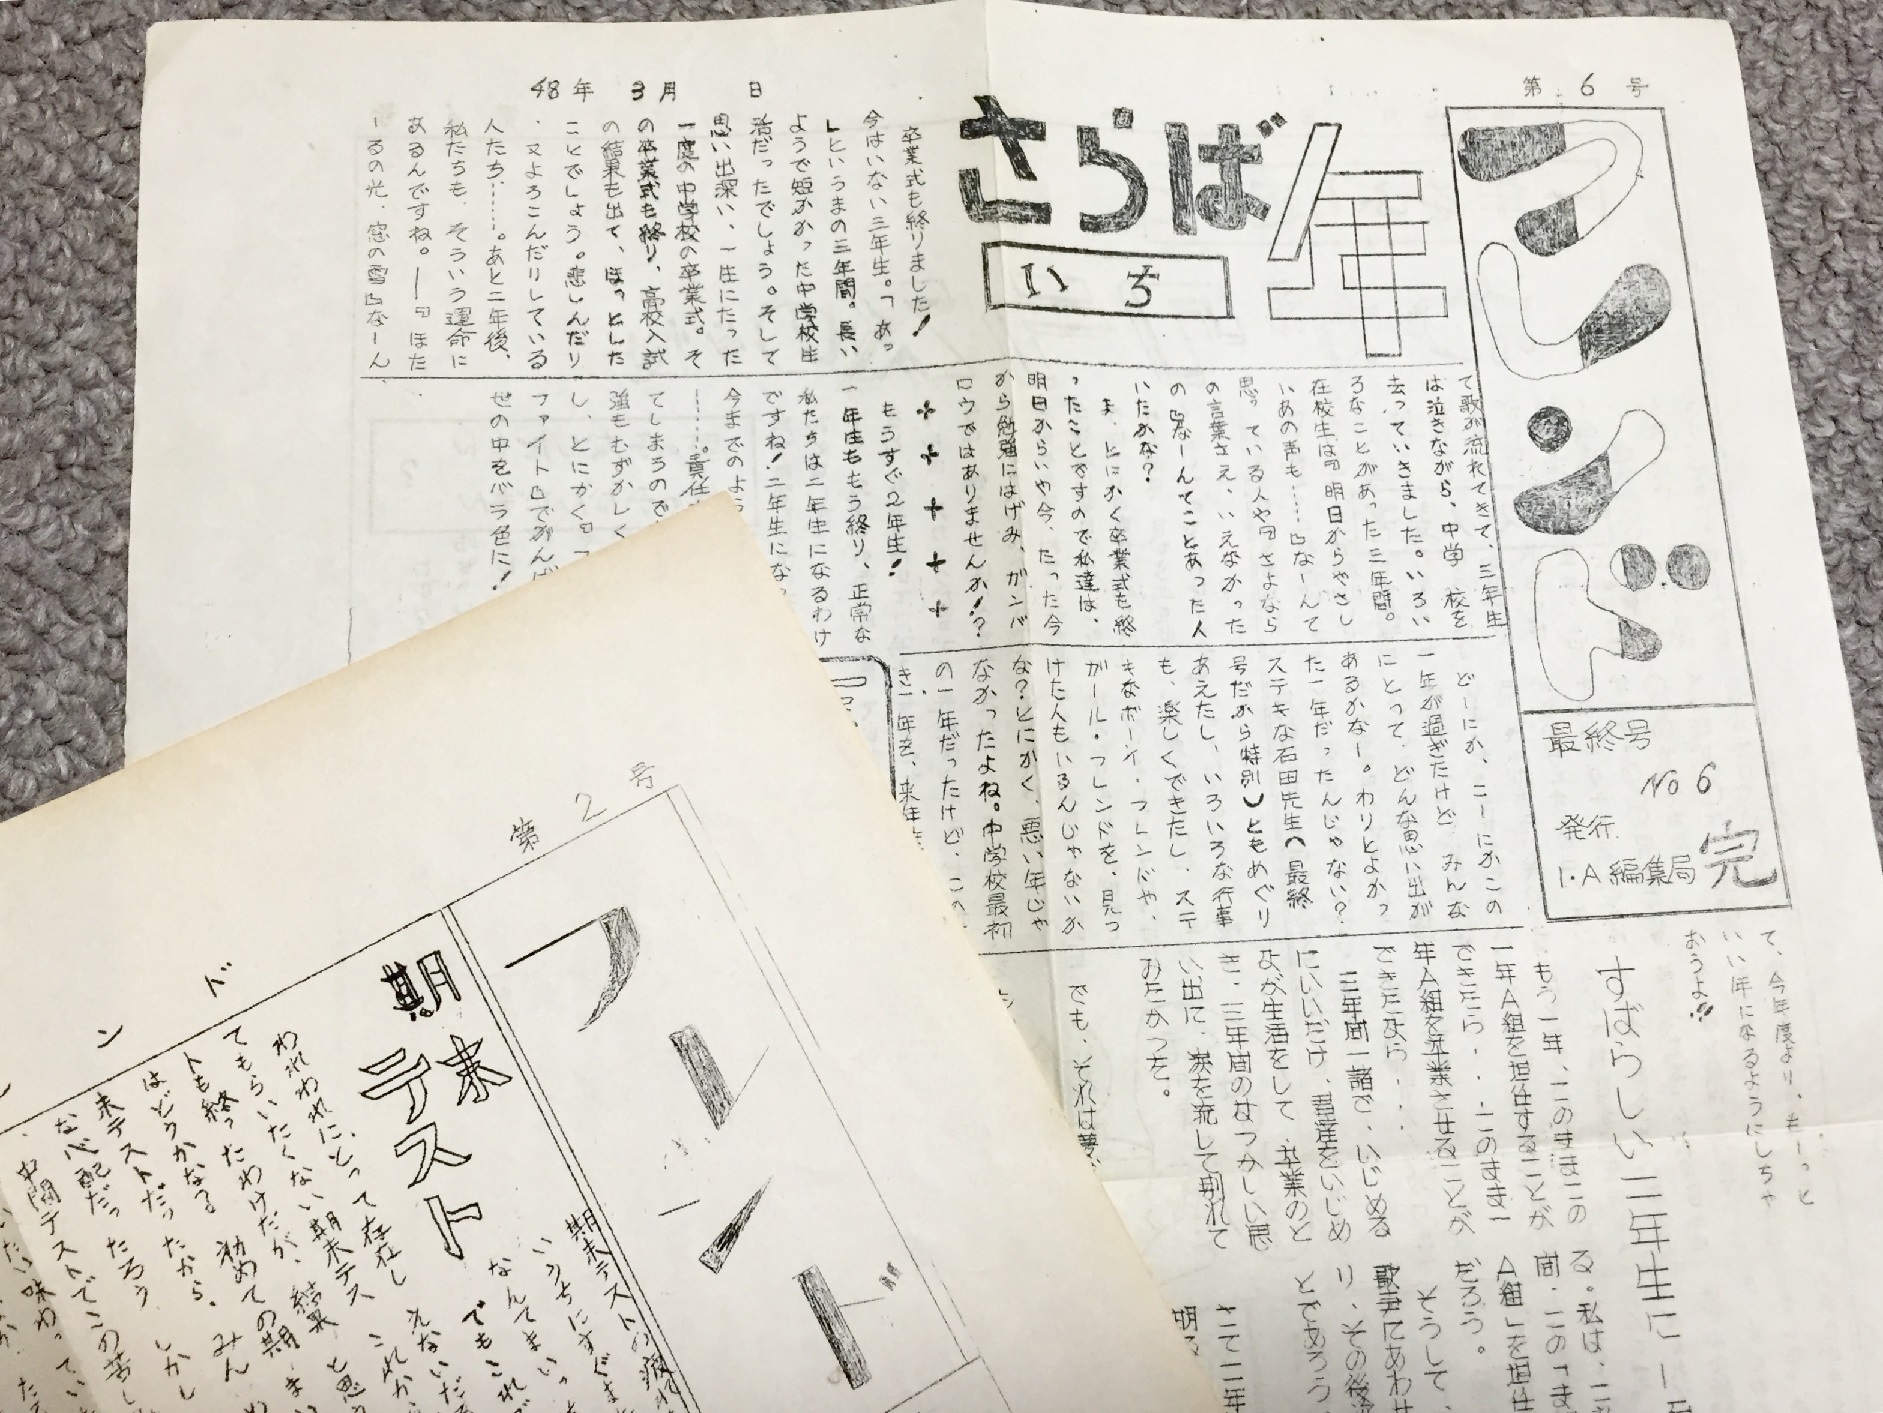 第 6 号
48年 3月 日
フレンド
最終号
No 6
発行
1・A編集局
完
さらば
いち
年
卒業式も終りました!
今はいない三年生。「あっ
」というまの三年間。長い
ようで短かかった中学校生
活だったでしょう。そして
思い出深い、一生にたった
一度の中学校の卒業式。そ
の卒業式も終り、高校入試
の結果も出て、ほっとした
ことでしょう。悲しんだり
、又よろこんだりしている
人たち……。あと二年後、
私たちも、そういう運命に
あるんですね。―『ほた
ーるの光、窓の雪』なーん
て歌が流れてきて、三年生
は泣きながら、中学校を
去っていきました。いろい
ろなことがあった三年間。
在校生は『明日からやさし
いあの声も……』なーんて
思っている人や『さよなら
の言葉さえ、いえなかった
の』なーんてことあった人
いたかな?
ま、とにかく卒業式も終
ったことですので私達は、
明日からいや今、たった今
から勉強にはげみ、ガンバ
ロウではありませんか!?
もうすぐ2年生!
一年生ももう終り、正常な
私たちは二年生になるわけ
ですね!二年生にな
今までのよう
……。責任
てしまうので
強もむずかしく
し、とにかく『フ
ァイト』でがんば
世の中をバラ色に!
どーにか、こーにかこの
一年が過ぎたけど みんな
にとって、どんな思い出が
あるかなー。わりとよかっ
た一年だったんじゃない?
ステキな石田先生(最終
号だから特別)ともめぐり
あえたし、いろいろな行事
も、楽しくできたし、ステ
キなボーイ・フレンドや、
ガール・フレンドを、見つ
けた人もいるんじゃないか
な?とにかく、悪い年じゃ
なかったよね。中学校最初
の一年だったけど、この
き一年を、来年
て、今年度より、もーっと
いい年になるようにしちゃ
おうよ!!
すばらしい二年生に
もう一年、このままこの
一年A組を担任することが
できたら・・・このまま一
年A組を卒業させることが
できたなら・・・
三年間一諸で、いじめる
にいいだけ、生徒をいじめ
よが生活をして、卒業のと
き、三年間のなつかしい思
い出に、涙を流して別れて
みたかった。
でも、それは夢
る。私は、二
間、この「ま
A組」を担任
だろう。
そうして、
歌声にあわせ
り、その後
とであろう
さて二年
明る
第 2 号
フレンド
ンド
期末テスト
われわれにとって存在し
てもらいたくない期末テス
トも終ったわけだが、結果
はどうかなる 初めての期
末テストだったから、みん
な心配だったろう しかし
中間テストでこの苦し
いたい味わってい
期末テストの疲れ
いうちにすぐま
なんてまいっ
でもこれで
えないだ
これから
と思